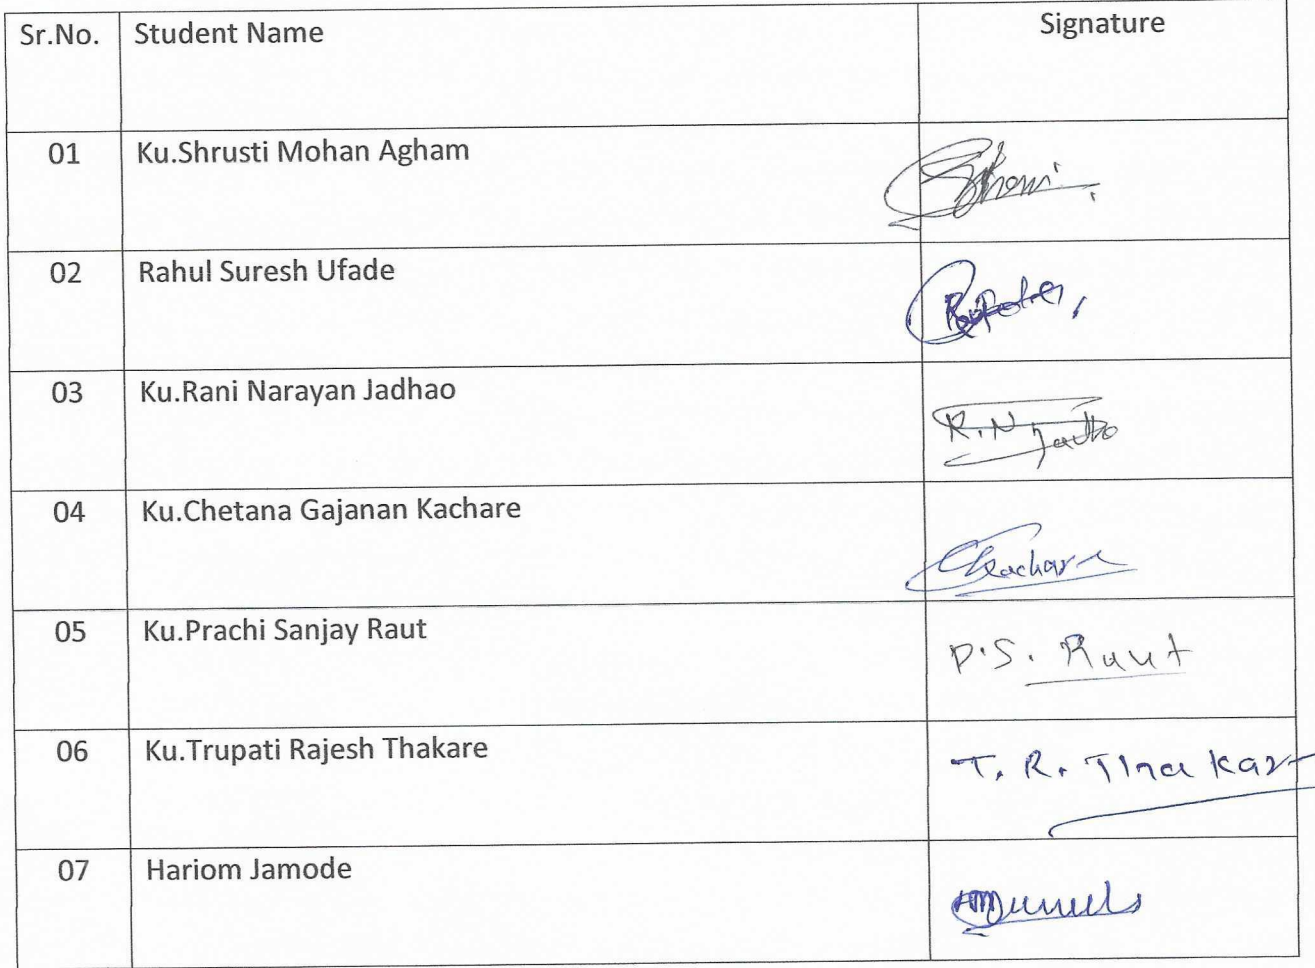 Sr.No. Student Name Signature
01 Ku.Shrusti Mohan Agham
02 Rahul Suresh Ufade
03 Ku.Rani Narayan Jadhao R.N Jadho
04 Ku.Chetana Gajanan Kachare
05 Ku.Prachi Sanjay Raut P.S. Raut
06 Ku.Trupati Rajesh Thakare T. R. Thakar
07 Hariom Jamode